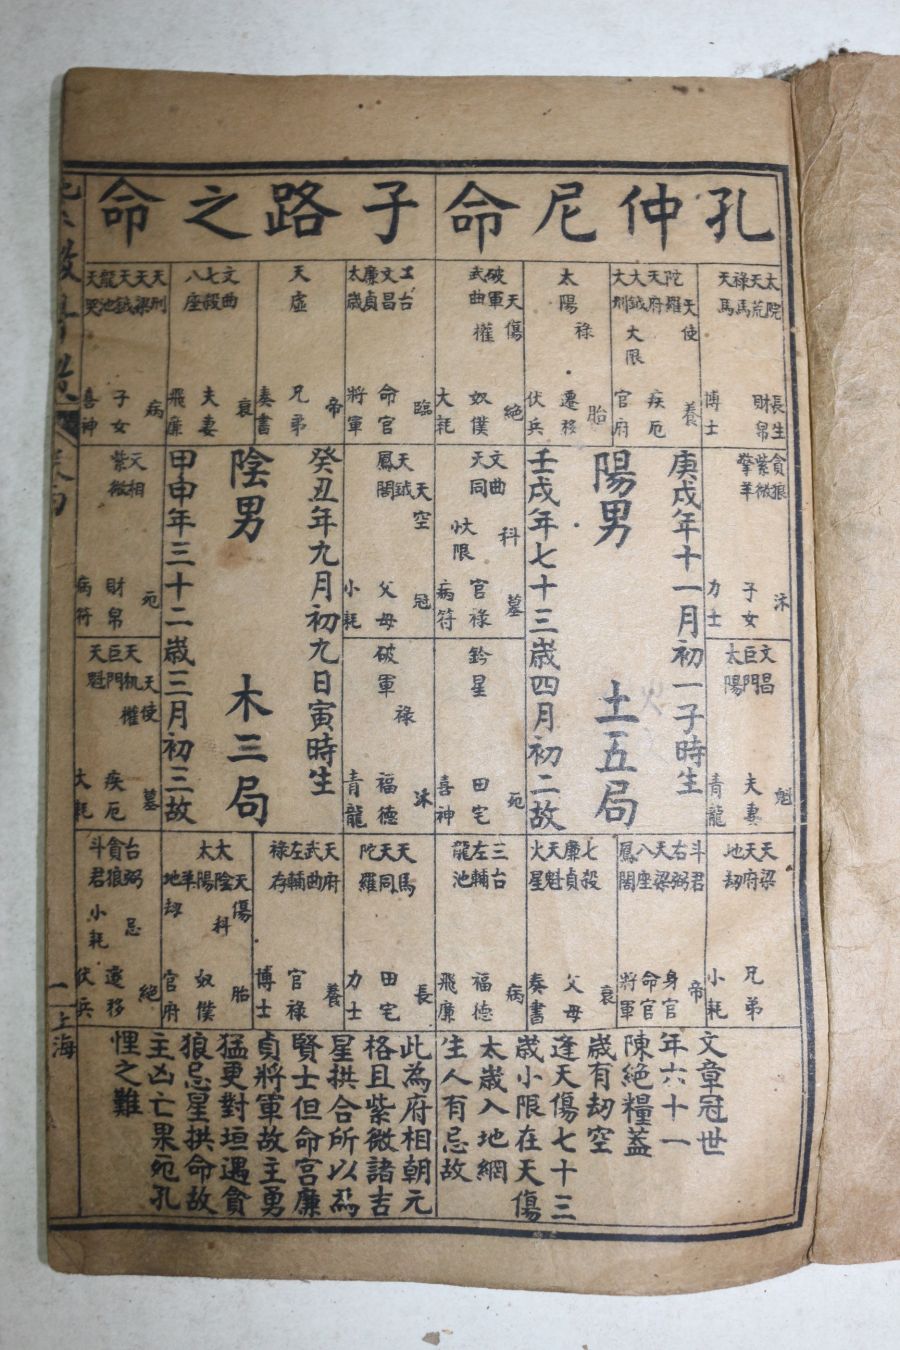 孔仲尼命
太阮
天荒
祿馬
天馬
長生
財帛
博士
陀羅
天府
大鉞
大刑
天使
大限
養
疾厄
官府
太陽
祿
胎
遷移
伏兵
破軍
武曲
天傷
權
絕
奴僕
大耗
貪狼
紫微
擎羊
沐
子女
力士
庚戌年十一月初一子時生
陽男
土五局
壬戌年七十三歲四月初二故
文曲
天同
科
大限
墓
官祿
病符
文昌
巨門
太陽
夫妻
青龍
鈴星
死
田宅
喜神
天梁
天府
地劫
兄弟
小耗
斗君
右弼
天梁
八座
鳳閣
帝
身官
命官
將軍
七殺
廉貞
天魁
火星
衰
父母
奏書
三台
左輔
龍池
病
福德
飛廉
文章冠世
年六十一
陳絕糧蓋
歲有劫空
逢天傷七十三
歲小限在天傷
太歲入地網
生人有忌故
子路之命
三台
文昌
廉貞
太歲
臨
命官
將軍
天虛
帝
兄弟
奏書
文曲
七殺
八座
衰
夫妻
飛廉
天刑
天梁
天鉞
龍池
天哭
病
子女
喜神
天鉞
鳳閣
天空
冠
父母
小耗
癸丑年九月初九日寅時生
陰男
木三局
甲申年三十二歲三月初三故
天相
紫微
死
財帛
病符
破軍
祿
沐
福德
青龍
天機
巨門
天魁
天使
權
墓
疾厄
大耗
天馬
天同
陀羅
長
田宅
力士
天府
武曲
左輔
祿存
養
官祿
博士
太陰
太陽
羊
地劫
天傷
科
胎
奴僕
官府
台弼
貪狼
斗君
忌
小耗
絕
遷移
伏兵
此為府相朝元
格且紫微諸吉
星拱合所以為
賢士但命宮廉
貞將軍故主勇
猛更對垣遇貪
狼忌星拱命故
主凶亡果死孔
悝之難
上海